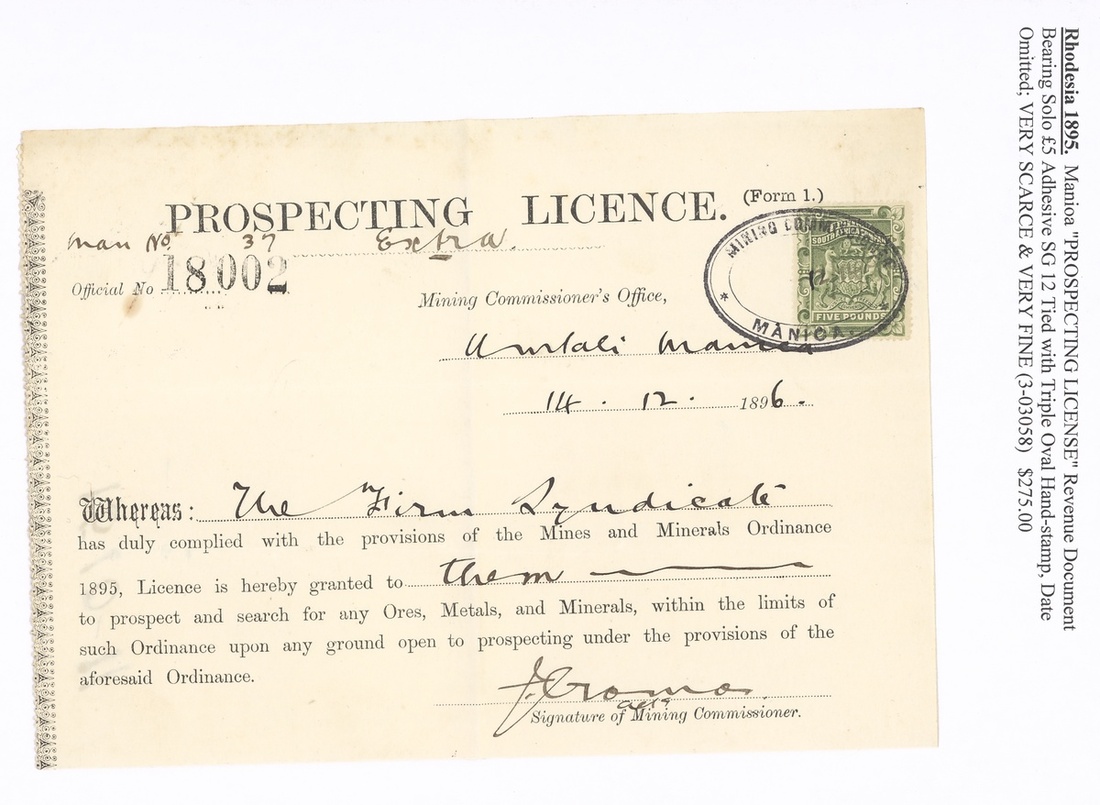 Rhodesia 1895. Manioa "PROSPECTING LICENSE" Revenue Document
Bearing Solo £5 Adhesive SG 12 Tied with Triple Oval Hand-stamp, Date
Omitted; VERY SCARCE & VERY FINE (3-03058) $275.00
(Form 1.)
PROSPECTING LICENCE.
Man No 37 Extra.
Official No 18002
MINING COMM
MANICA.
SOUTH AFRICA
FIVE POUNDS
Mining Commissioner's Office,
Umtali Manica
14 . 12 . 1896.
Whereas: The Firm Syndicate
has duly complied with the provisions of the Mines and Minerals Ordinance
1895, Licence is hereby granted to them
to prospect and search for any Ores, Metals, and Minerals, within the limits of
such Ordinance upon any ground open to prospecting under the provisions of the
aforesaid Ordinance.
Signature of Mining Commissioner.